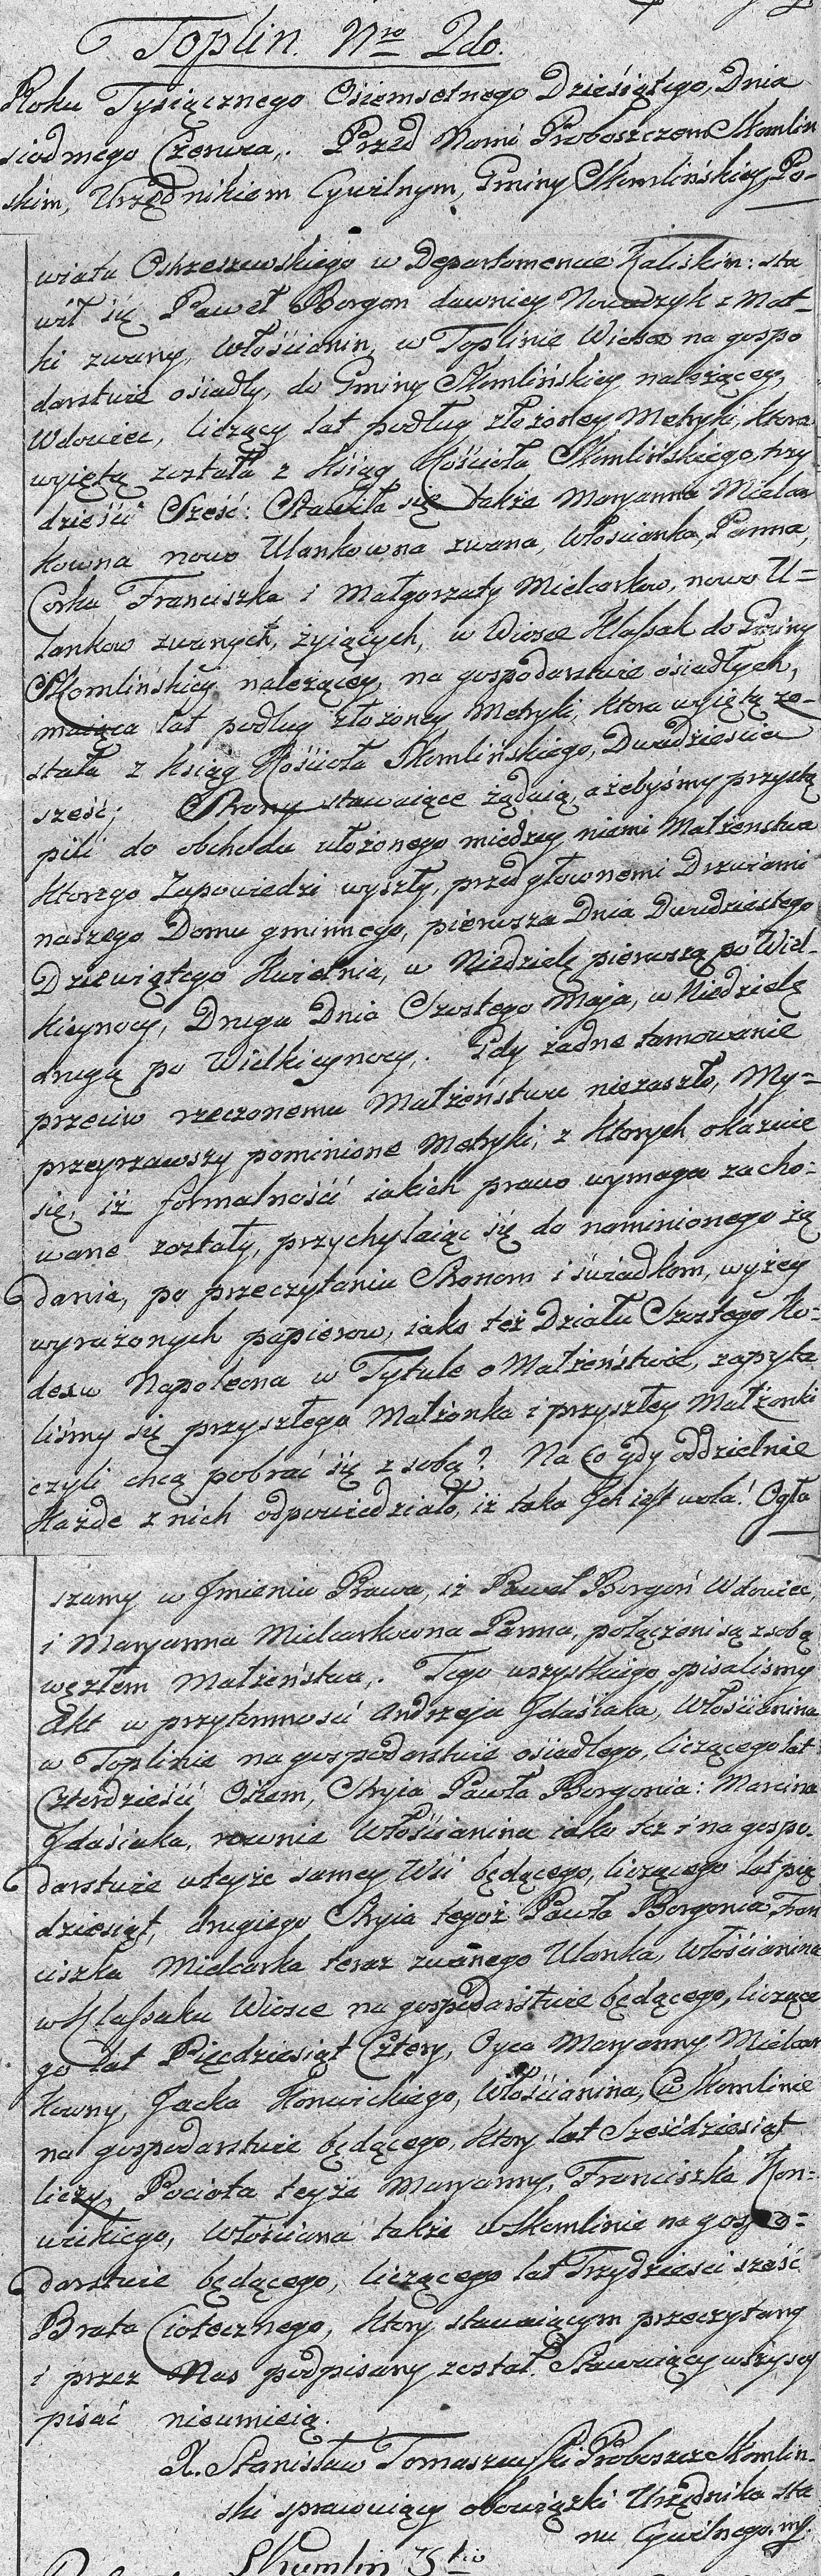 Toplin. Nro 2do.
Roku Tysiącznego Osiemsetnego Dziesiątego, Dnia
siodmego Czerwca,. Przed Nami Proboszczem Skomlin
skim, Urzędnikiem Cywilnym, Gminy Skomlińskiey, Po-
wiatu Ostrzeszewskiego w Departamencie Kaliskim: sta
wił się Paweł Borgon dawniey Nowadzyk z Mat-
ki zwany, Włościanin, w Toplinie Wiosce na gospo
darstwie ośiadły, do Gminy Skomlińskiey należącey,
Wdowiec, liczący lat podług złożoney Metryki, ktora
wyiętą została z Ksiąg Kościoła Skomlińskiego, trzy
dzieści Sześć: Stawiła się także Maryanna Mielcar
kowna nowo Ulankowna zwana, Włościanka, Panna,
Corka Franciszka i Małgorzaty Mielcarkow, nowo U=
lankow zwanych, żyiących, w Wiosce Klasak do Gminy
Skomlińskiey należącey, na gospodarstwie ośiadłych,
maiąca lat podług złożoney Metryki, ktora wyiętą zo-
stała z Ksiąg Kościoła Skomlińskiego, Dwadziescia
sześć; Strony stawaiące żądaią, ażebyśmy przystą
pili do obchodu ułożonego miedzy niemi Małżenstwa
ktorego Zapowiedzi wyszły, przed głownemi Drzwiami
naszego Domu gminnego, pierwsza Dnia Dwudziestego
Dziewiątego Kwietnia, w Niedzielę pierwszą po Wiel-
kieynocy, Druga Dnia Szostego Maja, w Niedzielę
drugą po Wielkieynocy,. Gdy żadne tamowanie
przeciw rzeczonemu Małżeństwu niezaszło, My=
przeyrzawszy pominione Metryki, z ktorych okazuie
się, iż formalności iakich prawo wymaga zacho=
wane zostały, przychylaiąc się do naminionego żą
dania, po przeczytaniu Stronom i świadkom, wyżey
wyrażonych papierow, iako też Działu Szostego Ko=
dexu Napoleona w Tytule o Małżeństwie, zapyta
liśmy się przyszłego Małżonka i przyszłey Małżonki
czyli chcą pobrać się z sobą? Na co gdy oddzielnie
Każde z nich odpowiedziało, iż taka Ich iest wola! Ogła
szamy w Jmieniu Prawa, iż Paweł Borgoń Wdowiec,
i Maryanna Mielcarkowna Panna, połączeni są z sobą
węzłem Małżeństwa,. Tego wszystkiego spisalismy
Akt w przytomności Andrzeja Idaśiaka, Włościanina
w Toplinie na gospodarstwie ośiadłego, liczącego lat
Czterdzieści Ośiem, Stryia Pawła Borgonia: Marcina
Idaśiaka, rownie Włościanina iako też i na gospo-
darstwie w teyże samey Wsi będącego, liczącego lat pię
dziesiąt, drugiego Stryia tegoż Pawła Borgonia, Fran
ciszka Mielcarka teraz zwanego Ulanka, Włościanina
w Klasaku Wiosce na gospodarstwie będącego, liczące
go lat Pięcdziesiąt Cztery, Oyca Maryanny Mielcar
kowny, Jacka Konwickiego, Włościanina, w Skomlinie
na gospodarstwie będącego, ktory lat Sześćdziesiąt
liczy, Pocioła teyże Maryanny, Franciszka Kon=
wickiego, Włościana także w Skomlinie na gospo=
darstwie będącego, liczącego lat Trzydziesci sześć
Brata Ciotecznego, ktory stawaiącym przeczytany
i przez Nas podpisany został. Stawaiący wszyscy
pisać nieumieią.
X. Stanisław Tomaszewski Proboszcz Skomlin-
ski sprawuiący obowiązki Urzędnika sta
nu Cywilnego. mp.
Skomlin 3tio